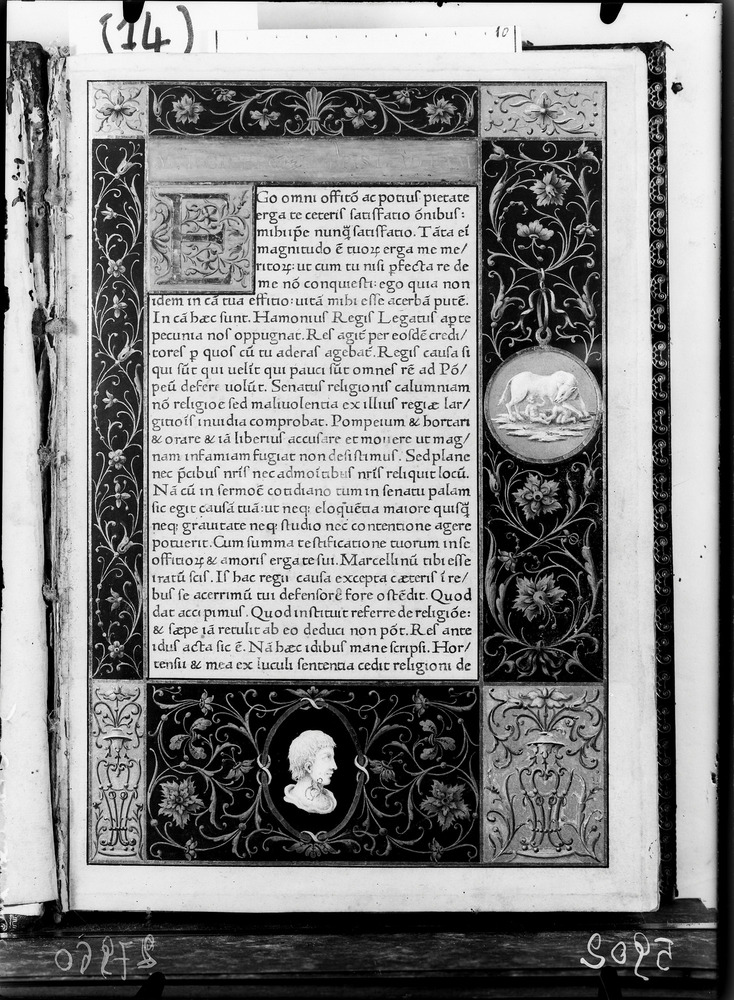 (14)
10
EGo omni offitō ac potiuſ pietate
erga te ceteriſ ſatiſfatio ōnibuſ:
mihi ip̄e nunq̄ ſatiſfatio. Tāta eī
magnitudo ē tuoꝝ erga me me/
ritoꝝ: ut cum tu niſi ꝑfecta re de
me nō conquieſti: ego quia non
idem in cā tua effitio: uitā mihi eſſe acerbā putē.
In cā hæc ſunt. Hamoniuſ Regiſ Legatuſ apte
pecunia noſ oppugnat. Reſ agit̄ per eoſdē credi/
toreſ ꝑ quoſ cū tu aderaſ agebat̄. Regiſ cauſa ſi
qui ſūt qui uelīt qui pauci ſūt omneſ rē ad Pō/
peū deferr̄ uolūt. Senatuſ religioniſ calumniam
nō religioe ſed maliuolentia ex illiuſ regiæ lar/
gitioīſ inuidia comprobat. Pompeium & hortari
& orare & iā liberiuſ accuſare et monere ut mag/
nam infamiam fugiat non deſiſtimuſ. Sed plane
nec p̄cibuſ nr̄iſ nec admoītibuſ nr̄iſ reliquit locū.
Nā cū in ſermoē cotidiano tum in ſenatu palam
ſic egit cauſā tuā: ut neq; eloquētia maiore quiſq̄
neq; grauitate neq; ſtudio nec contentione agere
potuerit. Cum ſumma teſtificatione tuorum in ſe
offitioꝝ & amoriſ erga te ſui. Marcellinū tibi eſſe
iratū ſciſ. Iſ hac regia cauſa excepta cæteriſ ī re/
buſ ſe acerrimū tui defenſorē fore oſtēdit. Quod
dat accipimuſ. Quod inſtituit referre de religiōe:
& ſæpe iā retulit ab eo deduci non pōt. Reſ ante
iduſ acta ſic ē. Nā hæc idibuſ mane ſcripſi. Hor/
tenſii & mea ex luculi ſententia cedit religioni de
27960
5902